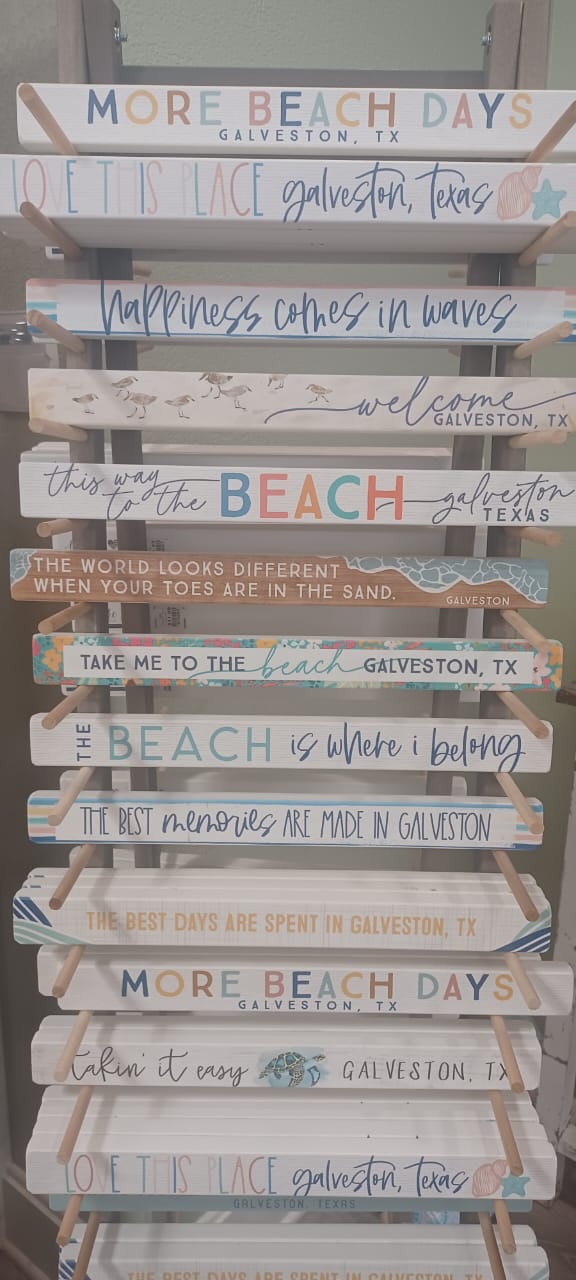 MORE BEACH DAYS
GALVESTON, TX
LOVE THIS PLACE galveston, texas
happiness comes in waves
welcome
GALVESTON, TX
this way to the BEACH galveston
TEXAS
THE WORLD LOOKS DIFFERENT
WHEN YOUR TOES ARE IN THE SAND.
GALVESTON
TAKE ME TO THE beach GALVESTON, TX
THE BEACH is where i belong
THE BEST memories ARE MADE IN GALVESTON
THE BEST DAYS ARE SPENT IN GALVESTON, TX
MORE BEACH DAYS
GALVESTON, TX
takin' it easy GALVESTON, TX
LOVE THIS PLACE galveston, texas
GALVESTON, TEXAS
THE BEST DAYS ARE SPENT IN GALVESTON, TX